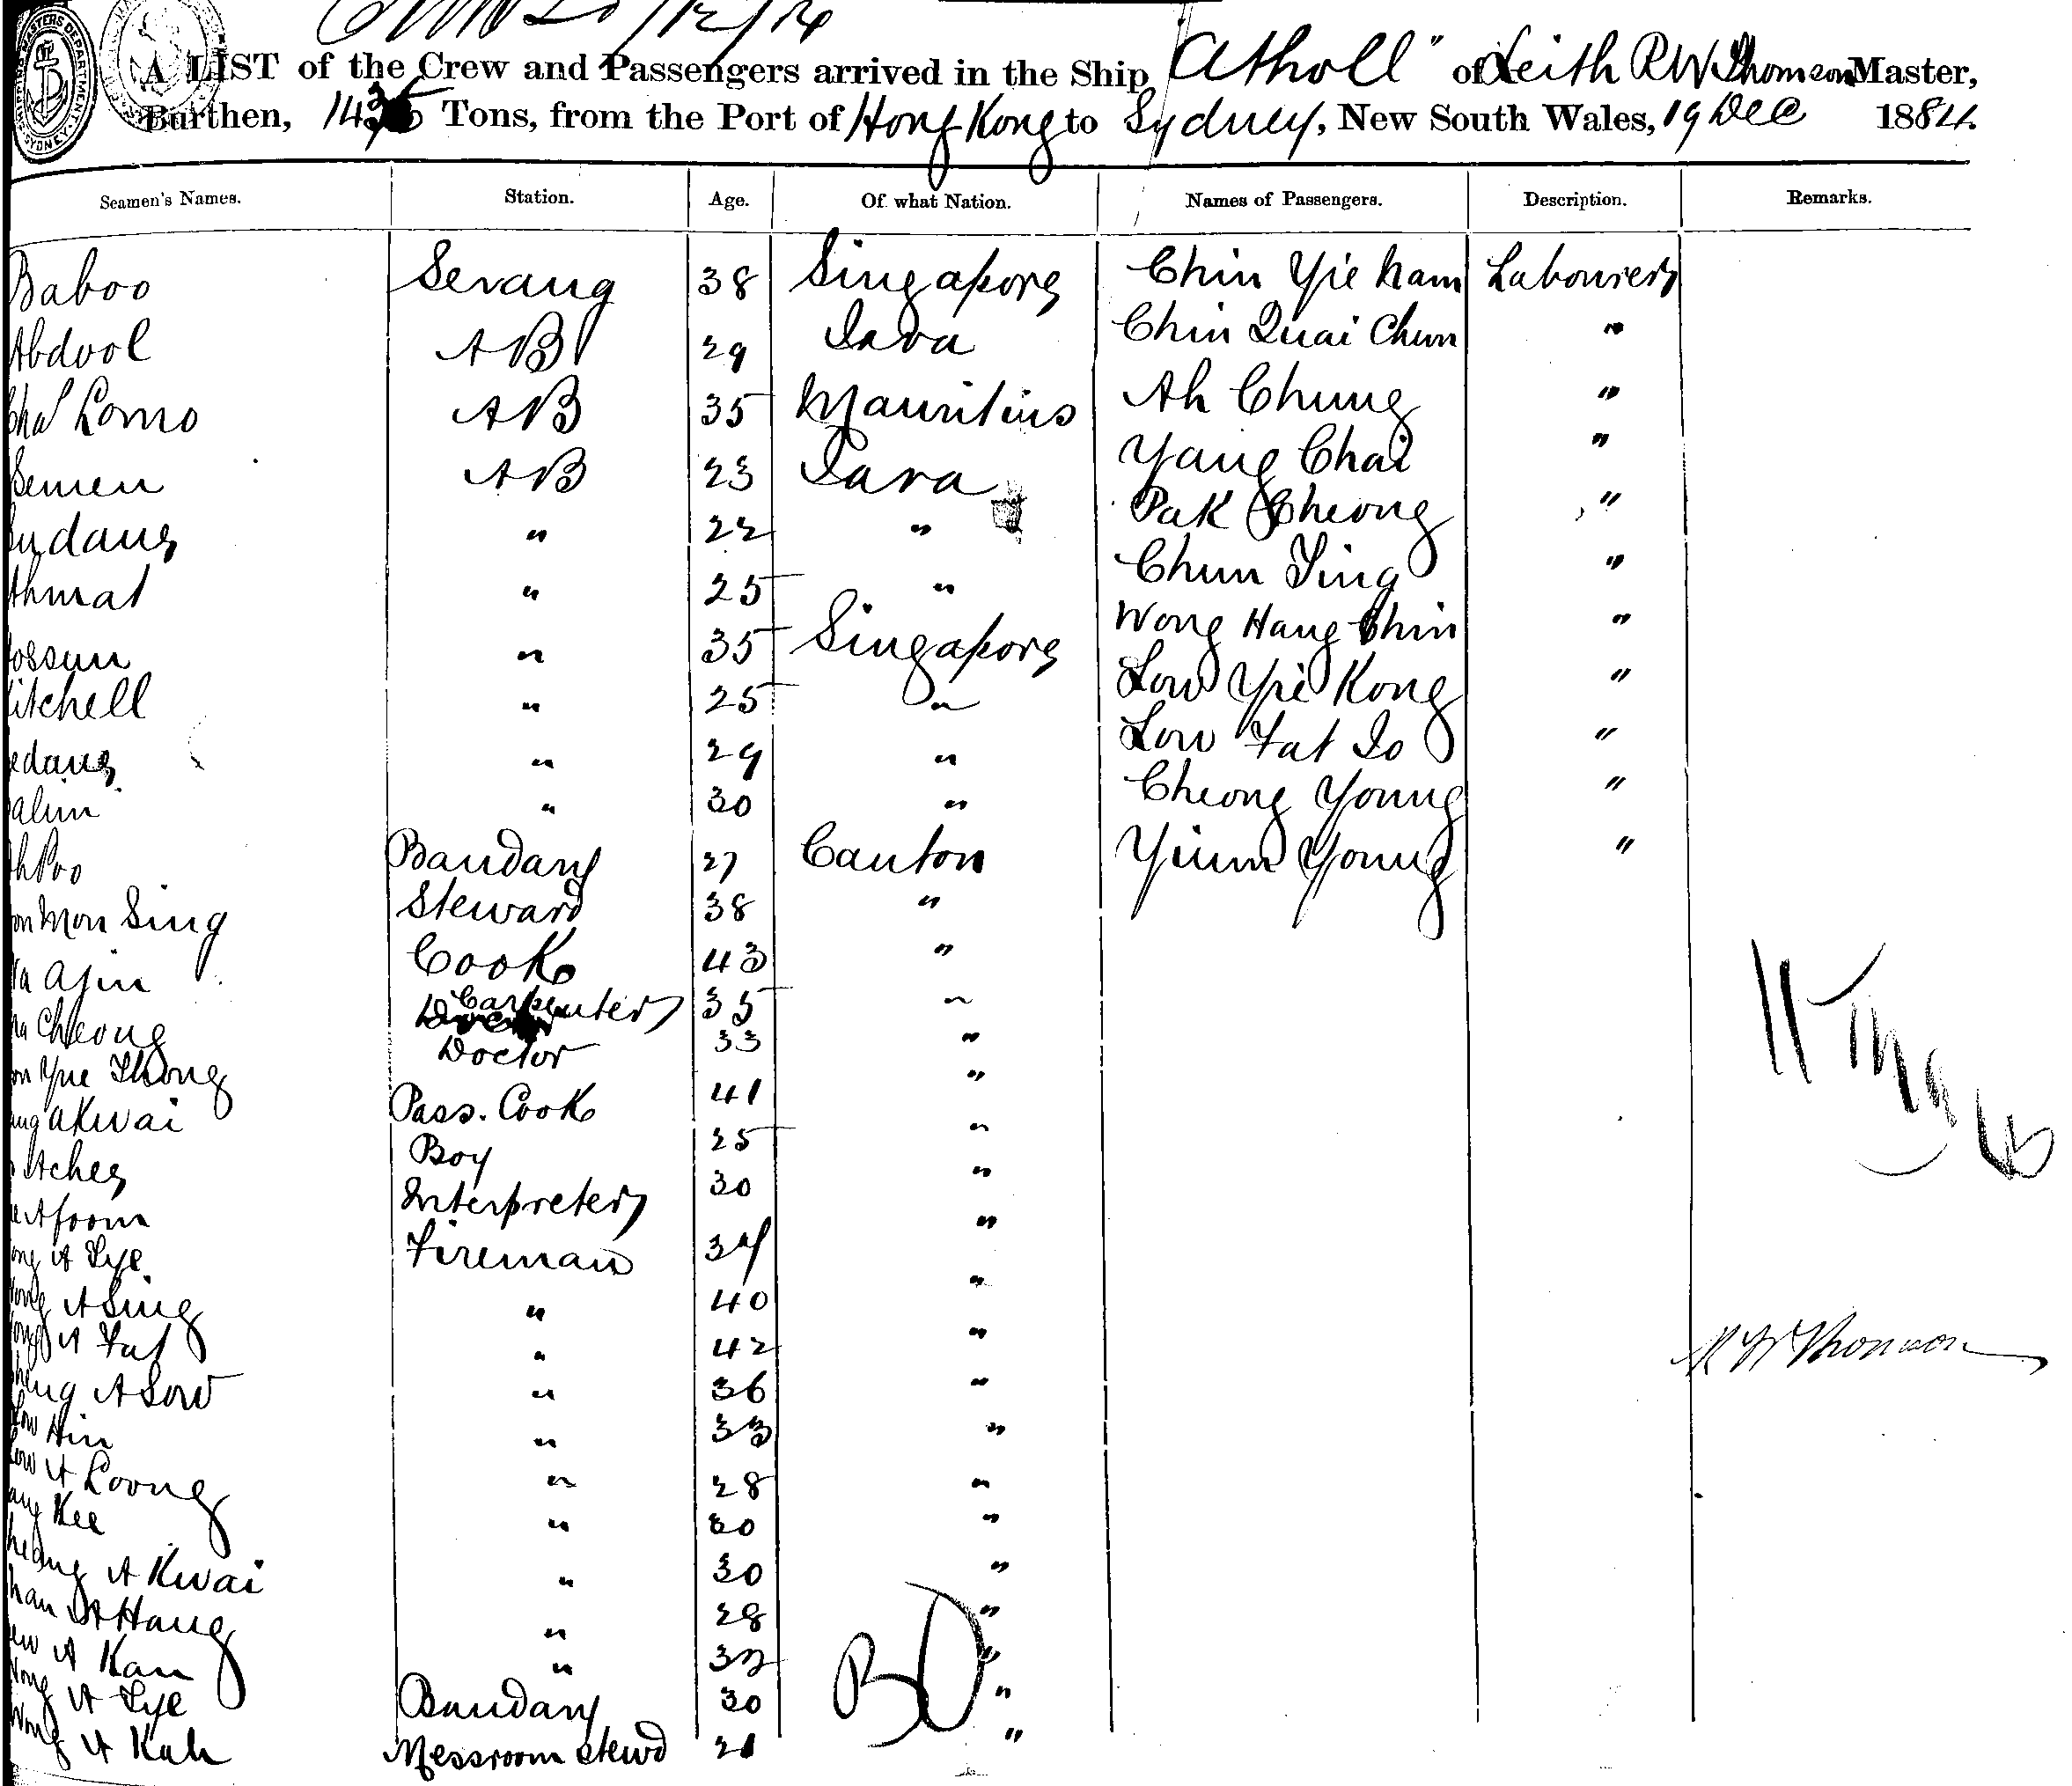 A LIST of the Crew and Passengers arrived in the Ship "Atholl" of Leith R W Thomson Master,
Burthen, Tons, from the Port of Hong Kong to Sydney, New South Wales, 19 Dec 1884.
Seamen's Names. Station. Age. Of what Nation. Names of Passengers. Description. Remarks.
Baboo Serang 38 Singapore Chin Yie Nam Labourers
Abdool AB 29 Java Chin Quai Chun "
Lomo AB 35 Mauritius Ah Chung "
Semen AB 23 Java Yang Chai "
" 22 " Pak Cheong "
Ahmat " 25 " Chun Sing "
" 35 Singapore Wong Hang Chin "
itchell " 25 " Low Yie Kong "
" 29 " Low Fat So "
alim " 30 " Cheong Young "
Ah Poo Bandary 27 Canton Yium Young "
Mon Sing Steward 38 "
Ajin Cook 43 "
Cheong Carpenter 35 "
Yue Thong Doctor 33 "
Akwai Pass. Cook 41 "
Achey Boy 25 "
Afoom Interpreter 30 "
A Lye Fireman 34 "
A Sing " 40 "
A Fat " 42 "
A Sow " 36 "
Hin " 33 "
A Loong " 28 "
Kee " 30 "
A Kwai " 30 "
A Hang " 28 "
A Kan " 32 "
Wong A Lye Bandary 30 "
Wong A Kah Messroom Stewd 21 "
R W Thomson